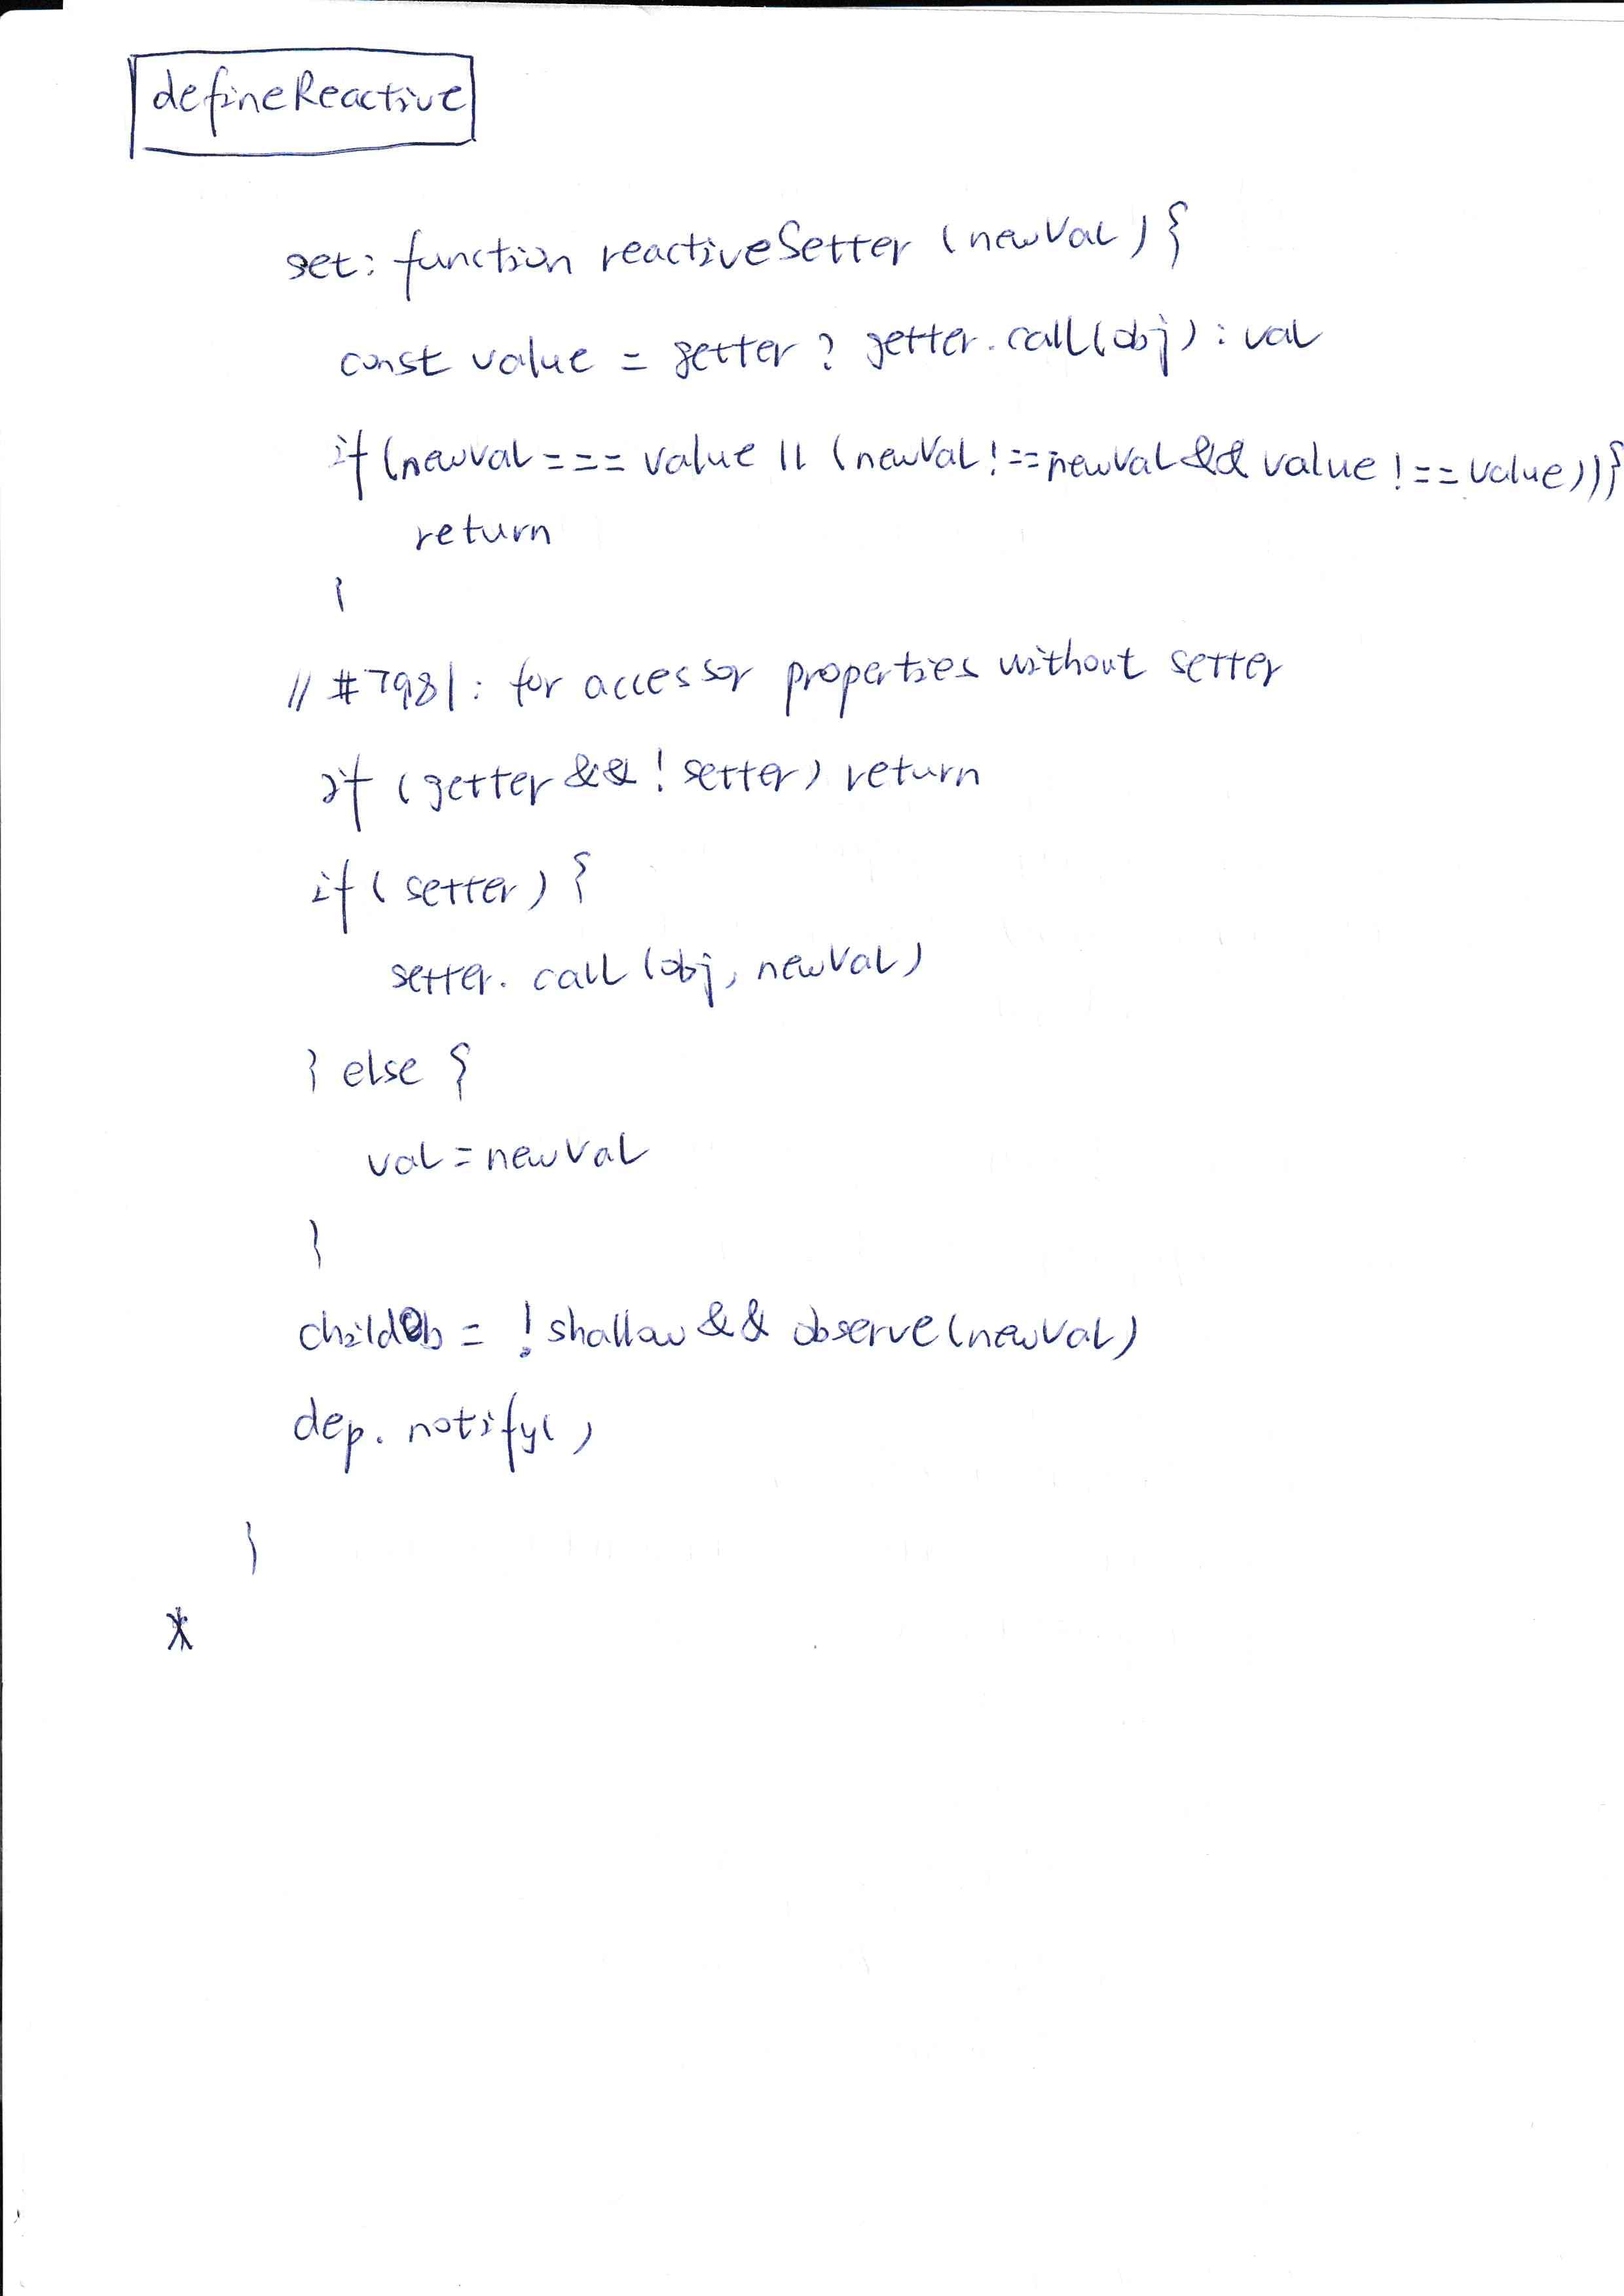 defineReactive
set: function reactiveSetter (newVal) {
const value = getter ? getter.call(obj) : val
if (newVal === value || (newVal !== newVal && value !== value)) {
return
}
// #7981: for accessor properties without setter
if (getter && ! setter) return
if (setter) {
setter. call (obj, newVal)
} else {
val = newVal
}
childOb = !shallow && observe(newVal)
dep. notify()
}
*